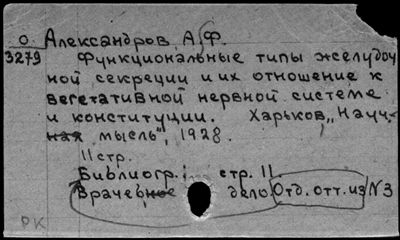 О. Александров, А. Ф.
3279 Функциональные типы желудоч
ной секреции и их отношение к
вегетативной нервной системе
и конституции. Харьков, „Науч-
ная мысль", 1928.
11 стр.
Библиогр.: стр. 11.
Врачебное дело Отд. отт. из №3
РК